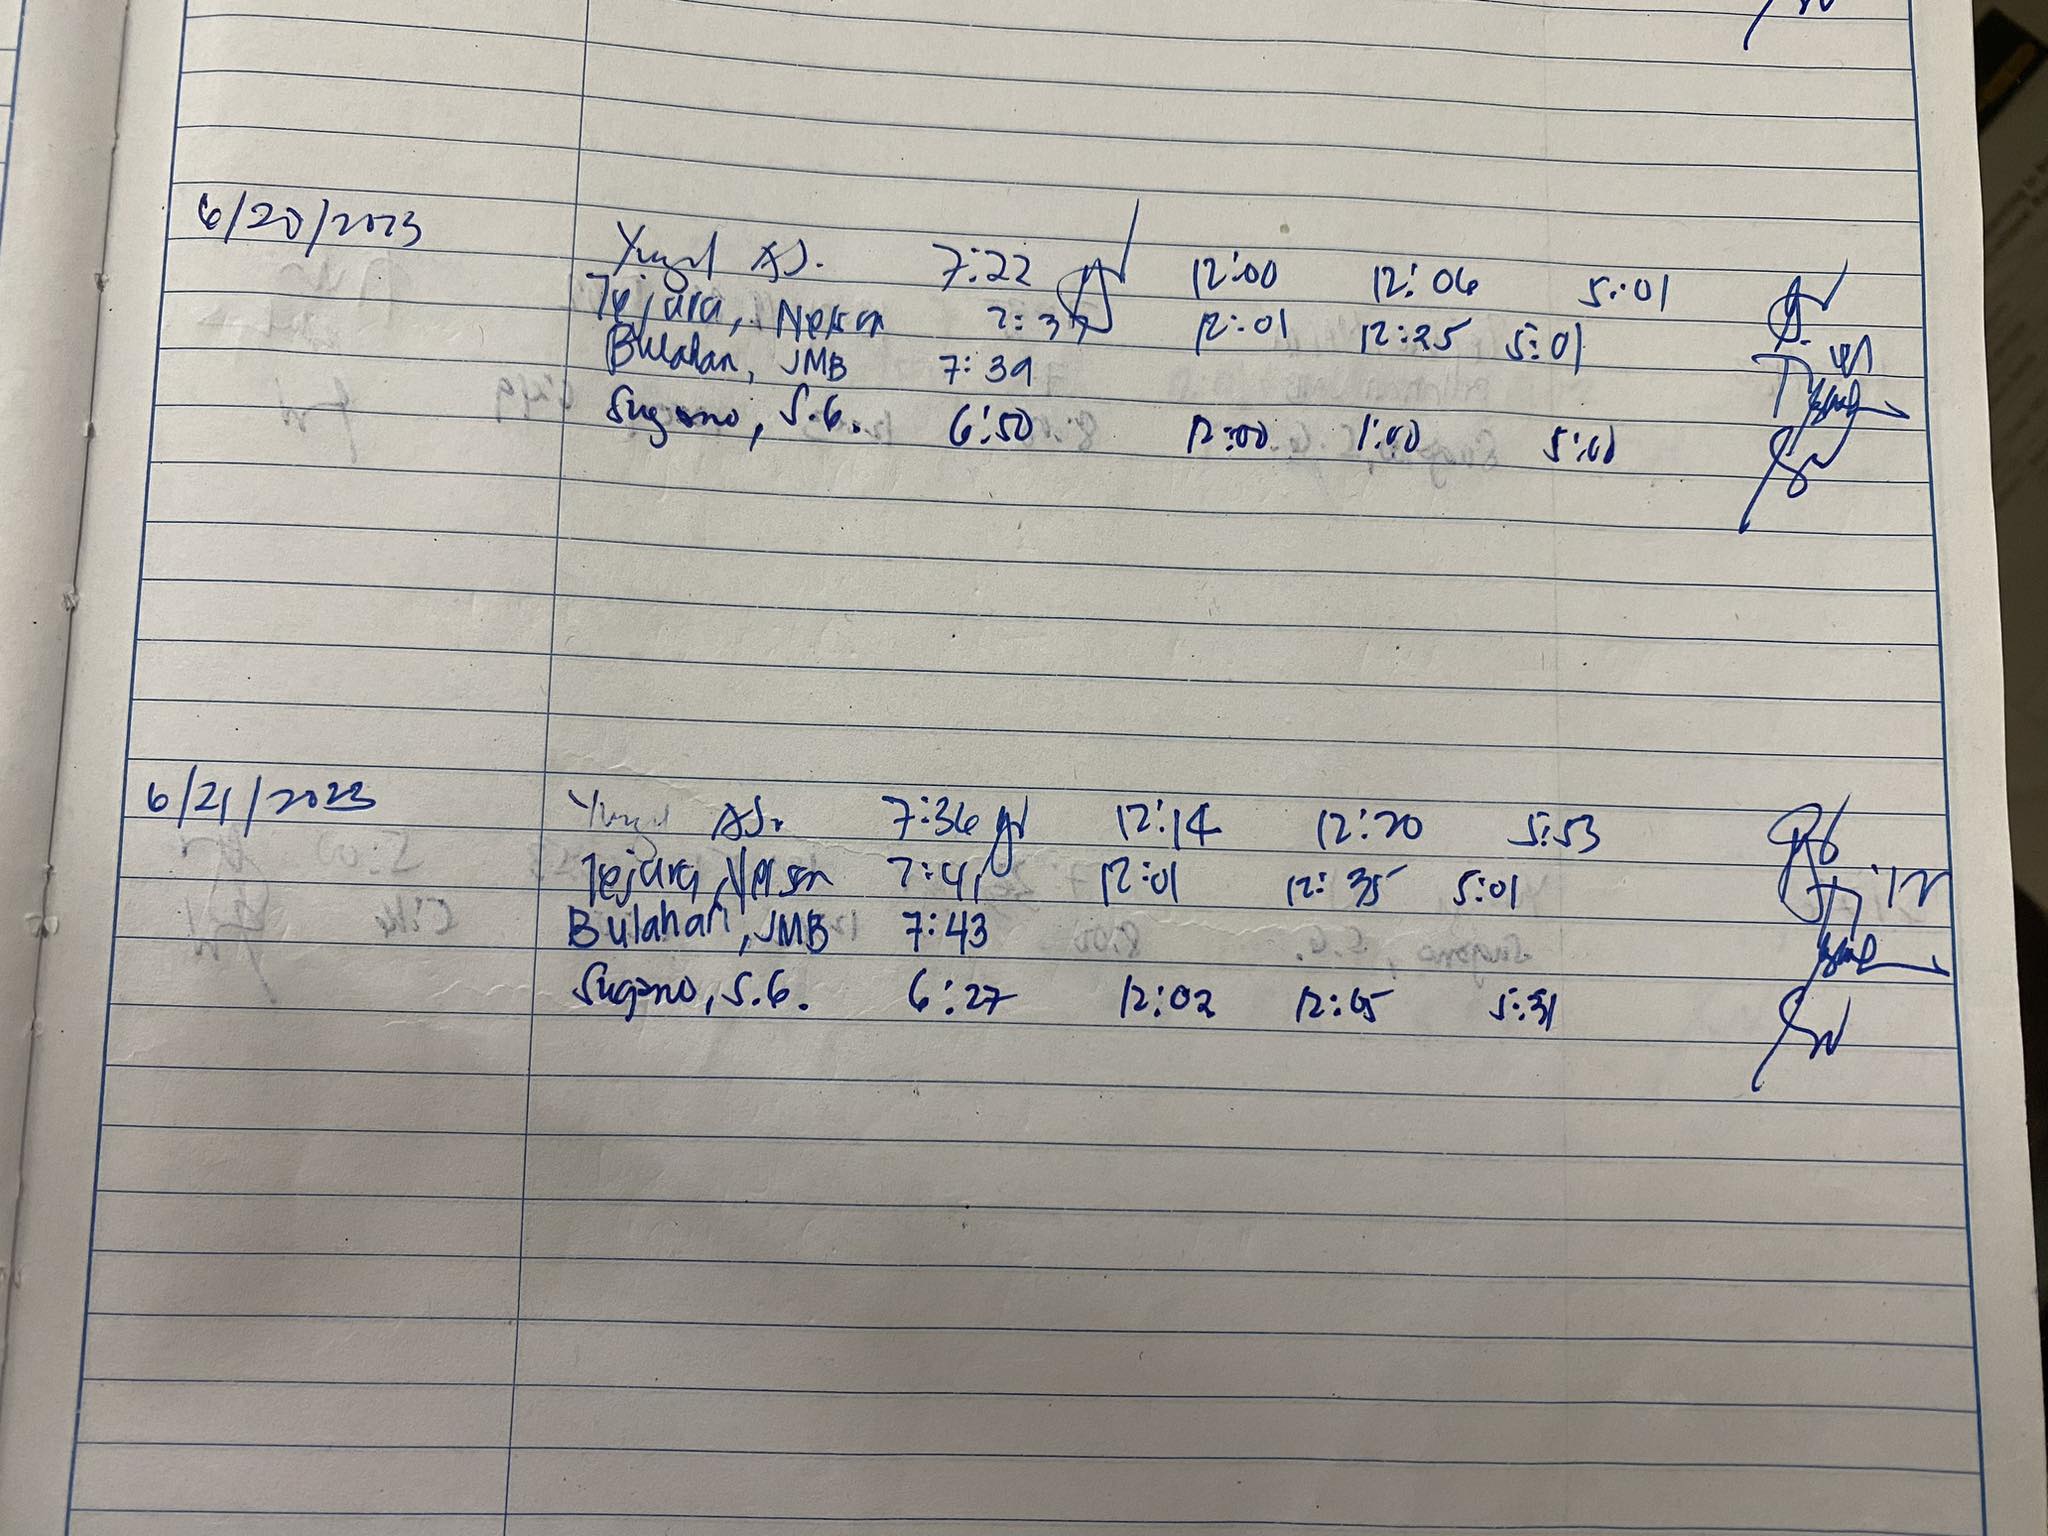 6/20/2023
AJ. 7:22 12:00 12:06 5:01
Tejara, Nelson 7:37 12:01 12:25 5:01
Bulahan, JMB 7:39
Sugano, S.G. 6:50 12:00 1:00 5:00
6/21/2023
AJ. 7:36 12:14 12:20 5:53
Tejara, Nelson 7:41 12:01 12:35 5:01
Bulahan, JMB 7:43
Sugano, S.G. 6:27 12:02 12:05 5:31